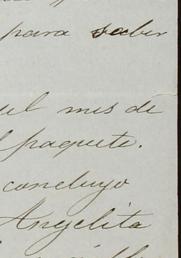 para saber
el mis de
paquete.
concluyo
Angelita